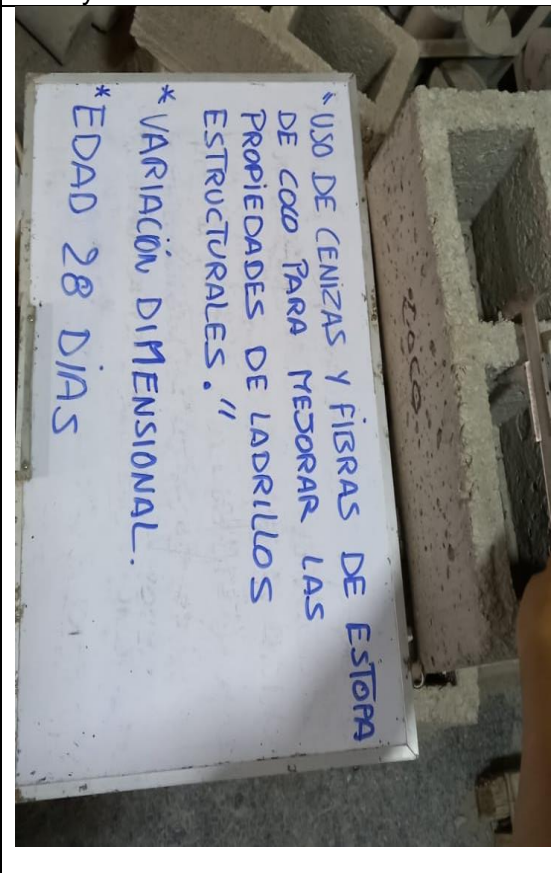 "USO DE CENIZAS Y FIBRAS DE ESTOPA
DE COCO PARA MEJORAR LAS
PROPIEDADES DE LADRILLOS
ESTRUCTURALES."
* VARIACIÓN DIMENSIONAL.
* EDAD 28 DÍAS